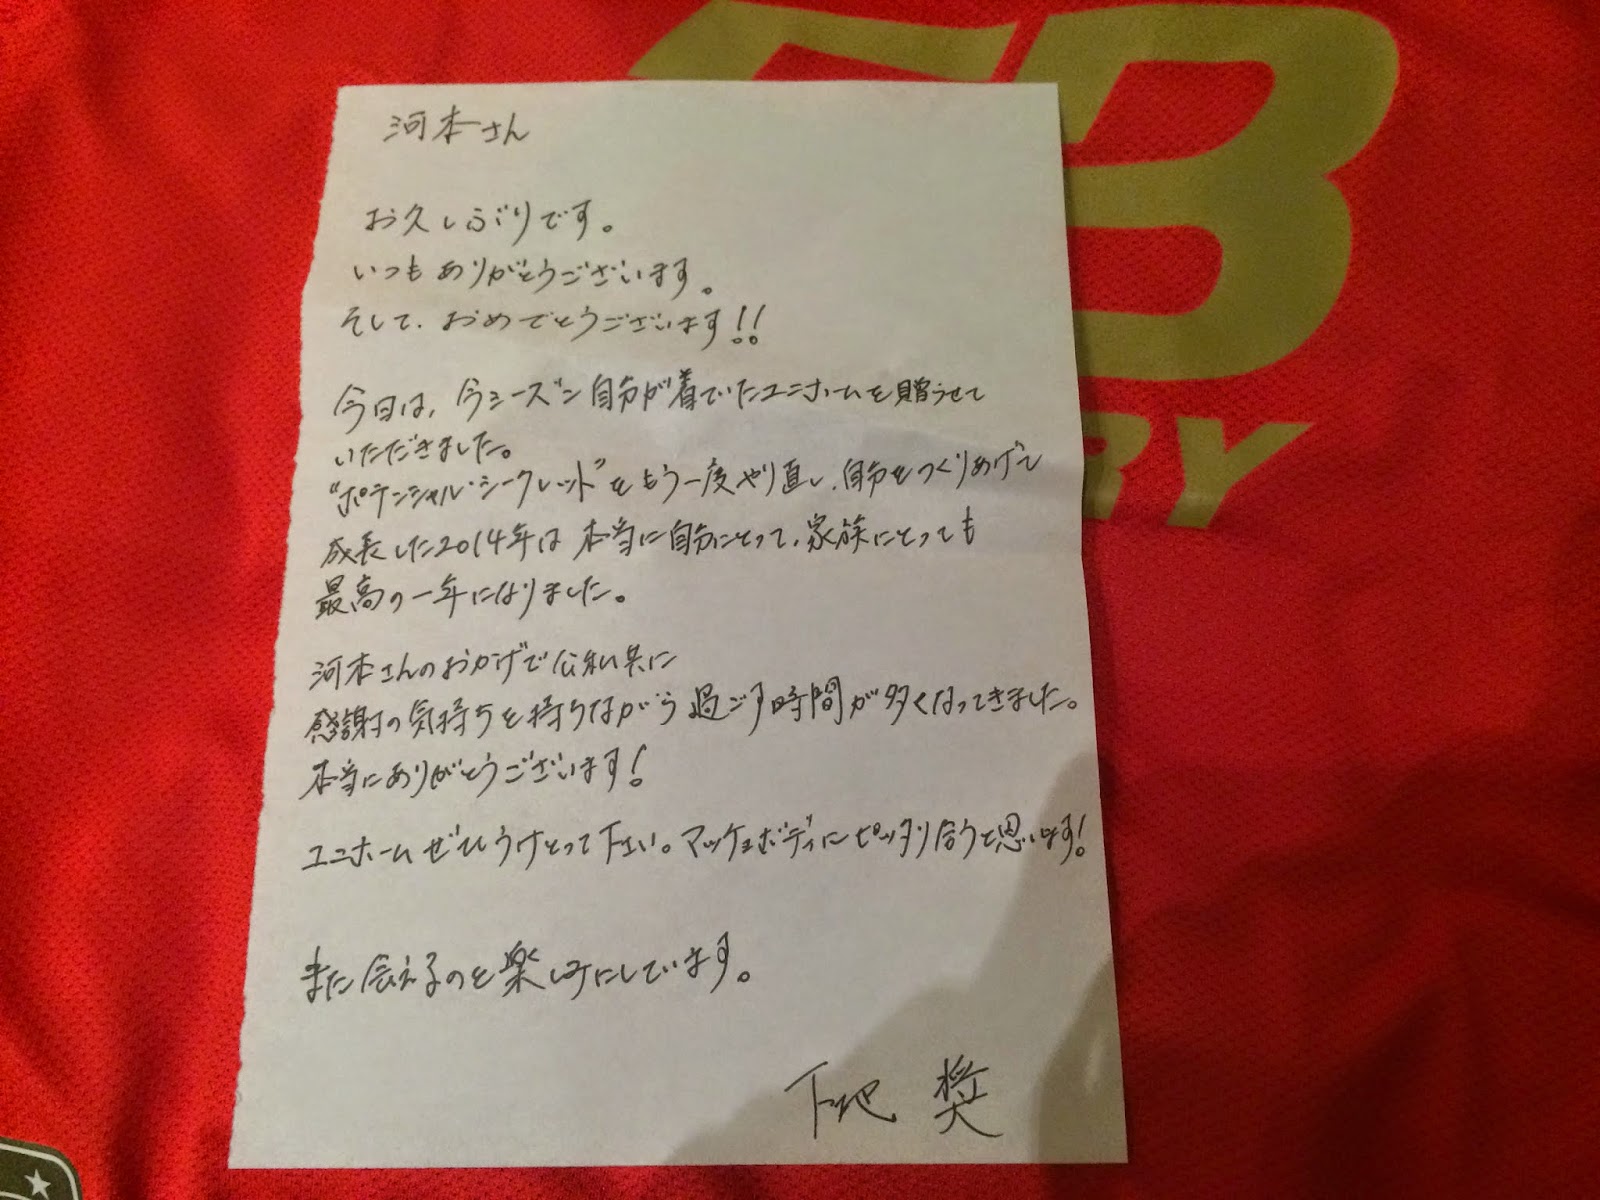 河本さん
お久しぶりです。
いつもありがとうございます。
そして、おめでとうございます!!
今日は、今シーズン自分が着ていたユニホームを贈らせて
いただきました。
"ポテンシャル・シークレット"をもう一度やり直し、自分をつくりあげて
成長した2014年は本当に自分にとって、家族にとっても
最高の一年になりました。
河本さんのおかげで公私共に
感謝の気持ちを持ちながら過ごす時間が多くなってきました。
本当にありがとうございます!
ユニホームぜひうけとって下さい。マッチョボディにピッタリ合うと思います!
また会えるのを楽しみにしています。
下地 奨
RY